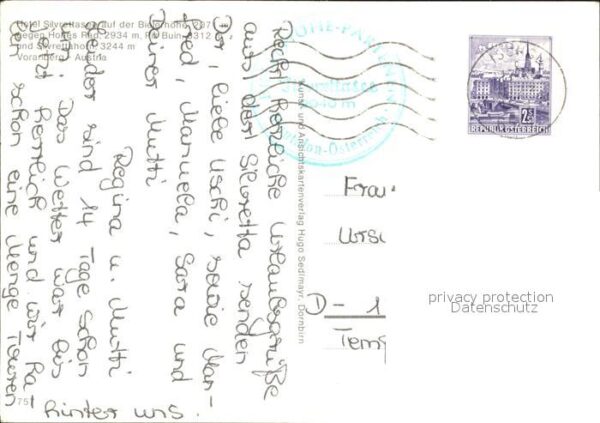 Hotel Silvrettasee auf der Bielerhöhe, 2071
gegen Hohes Rad, 2934 m, Piz Buin 3312
und Silvrettahorn 3244 m
Vorarlberg - Austria
Recht herzliche Urlaubsgrüße
aus der Silvretta senden
Dir, liebe Uschi, sowie Man-
fred, Manuela, Sara und
Deiner Mutti
Regina u. Mutti
Leider sind 14 Tage schon
um. Das Wetter war bis
jetzt herrlich und wir ha-
ben schon eine Menge Touren
hinter uns.
Kunst- und Ansichtskartenverlag Hugo Sedlmayr, Dornbirn
Silvrettasee
Montafon-Österreich
REPUBLIK ÖSTERREICH
Frau
Urs
D-1
Temp
privacy protection
Datenschutz